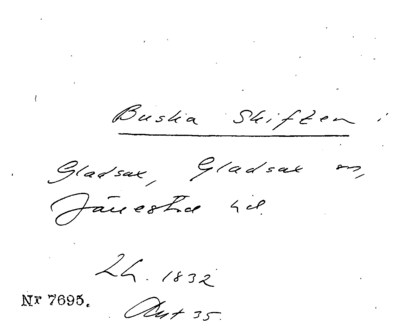 Buska Skiften i
Gladsax, Gladsax sn,
Järrestad hd.
Lh. 1832
Nr 7695.
Akt 35.